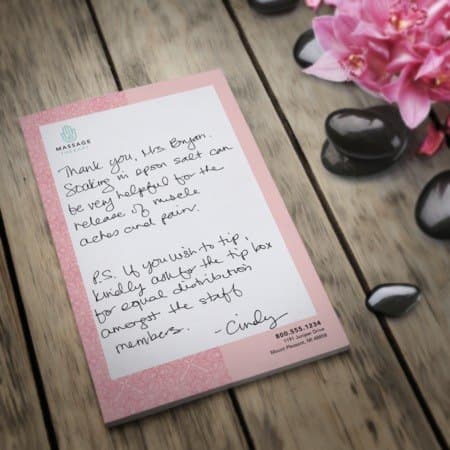 MASSAGE
THERAPY
Thank you, Mrs. Bryan.
Soaking in epson salt can
be very helpful for the
release of muscle
aches and pain.
P.S. If you wish to tip,
kindly ask for the tip box
for equal distribution
amongst the staff
members. - Cindy
800.555.1234
1191 Juniper Drive
Mount Pleasant, MI 48859